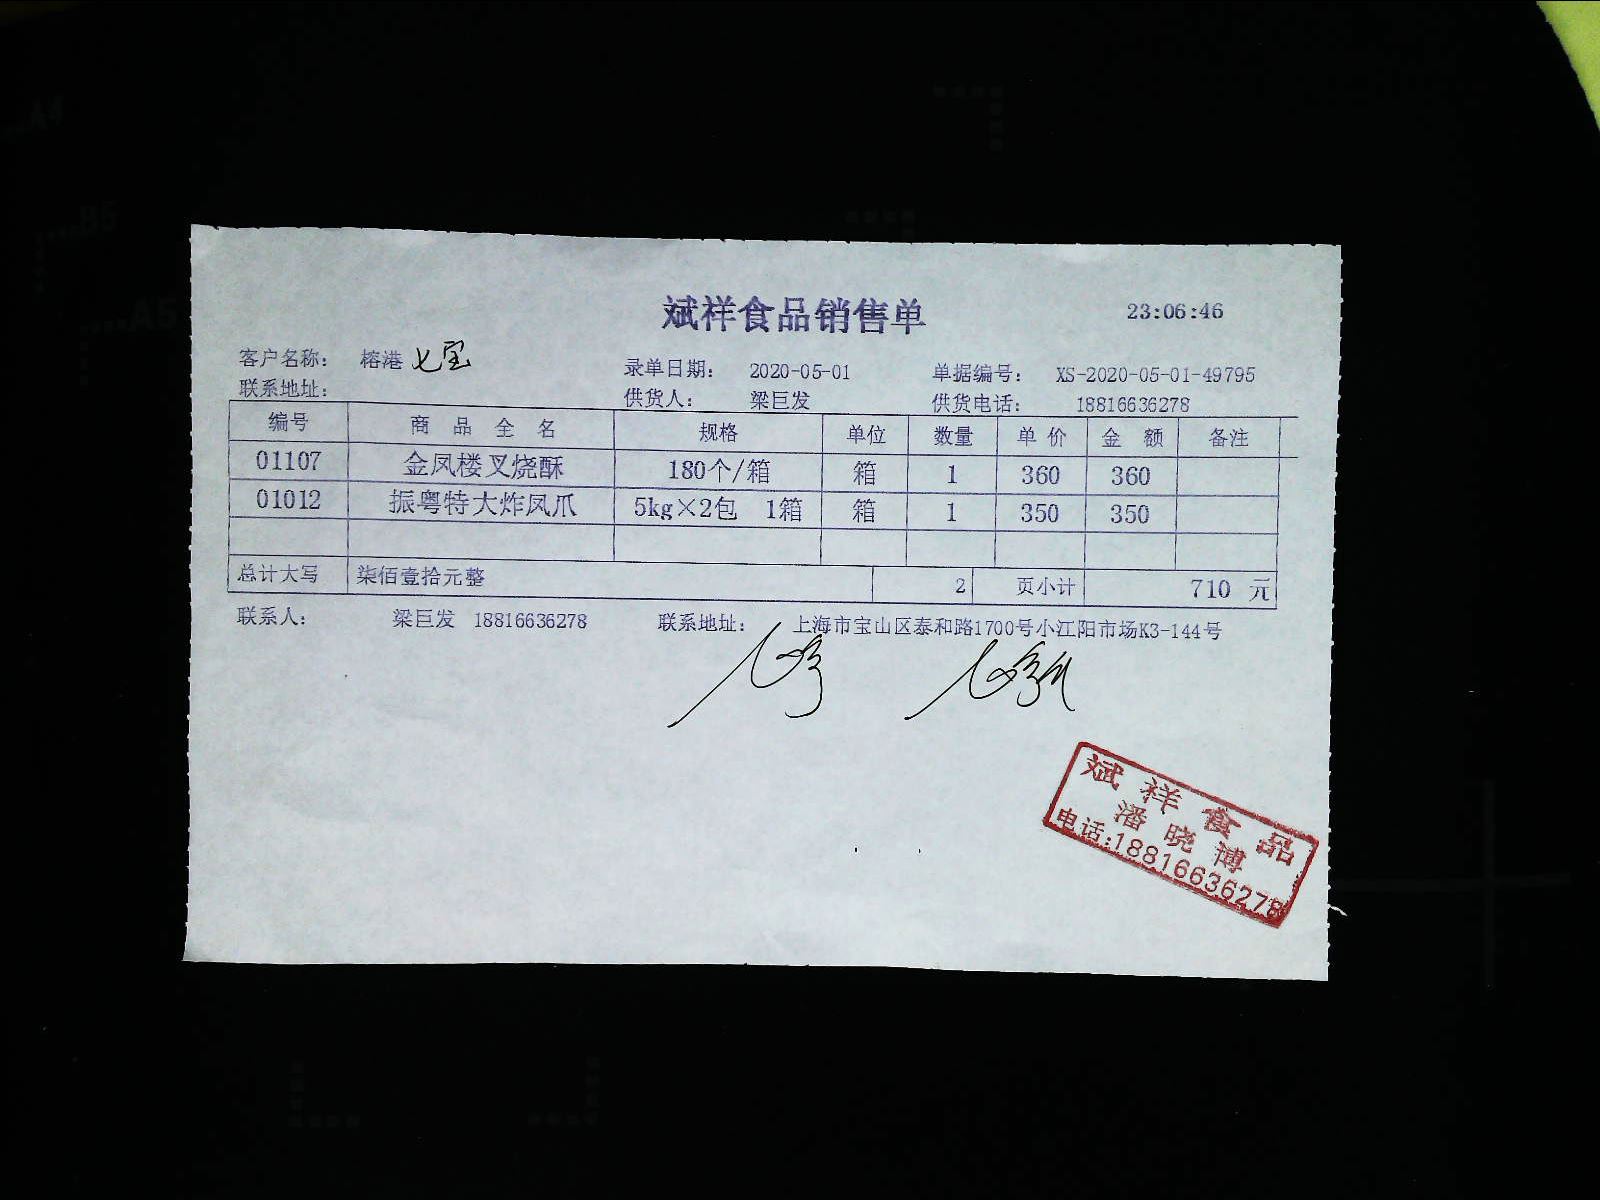 斌祥食品销售单 23:06:46
客户名称: 榕港 七宝 录单日期: 2020-05-01 单据编号: XS-2020-05-01-49795
联系地址: 供货人: 梁巨发 供货电话: 18816636278
编号 商品全名 规格 单位 数量 单价 金额 备注
01107 金凤楼叉烧酥 180个/箱 箱 1 360 360
01012 振粤特大炸凤爪 5kg×2包 1箱 箱 1 350 350
总计大写 柒佰壹拾元整 2 页小计 710 元
联系人: 梁巨发 18816636278 联系地址: 上海市宝山区泰和路1700号小江阳市场K3-144号
斌祥食品
潘晓博
电话:18816636278